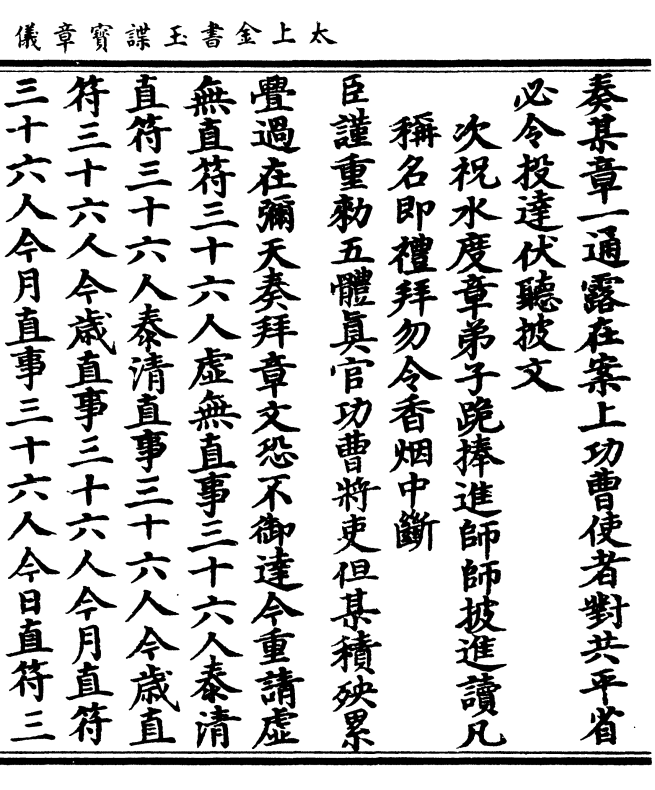 太上金書玉諜寳章儀
奏某章一通露在案上功曹使者對共平省
必令投達伏聽披文
次祝水度章弟子跪捧進師師披進讀凡
稱名即禮拜勿令香烟中斷
臣謹重勑五體真官功曹將吏但某積殃累
疊過在彌天奏拜章文恐不御達今重請虛
無直符三十六人虛無直事三十六人泰清
直符三十六人泰清直事三十六人今歳直
符三十六人今歳直事三十六人今月直符
三十六人今月直事三十六人今日直符三